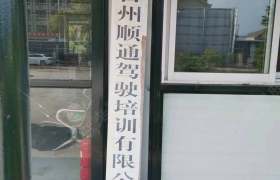 州顺通驾驶培训有限公